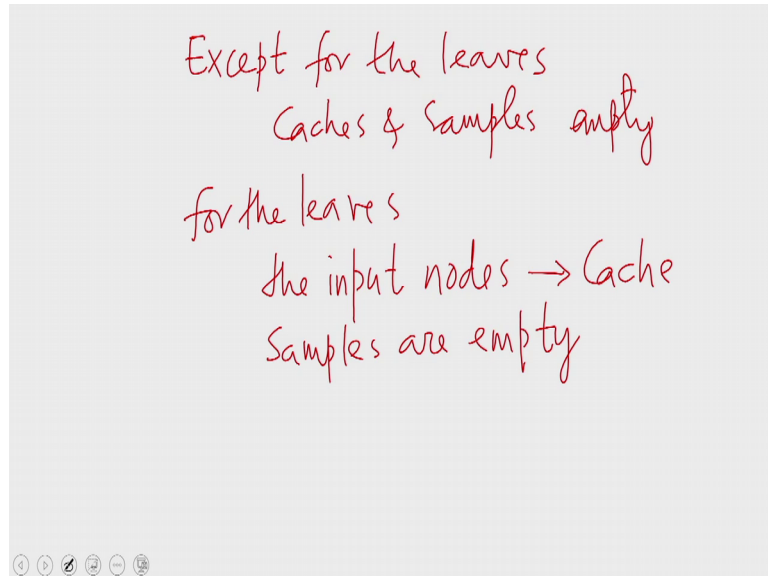 Except for the leaves
Caches & Samples empty
for the leaves
the input nodes → Cache
Samples are empty